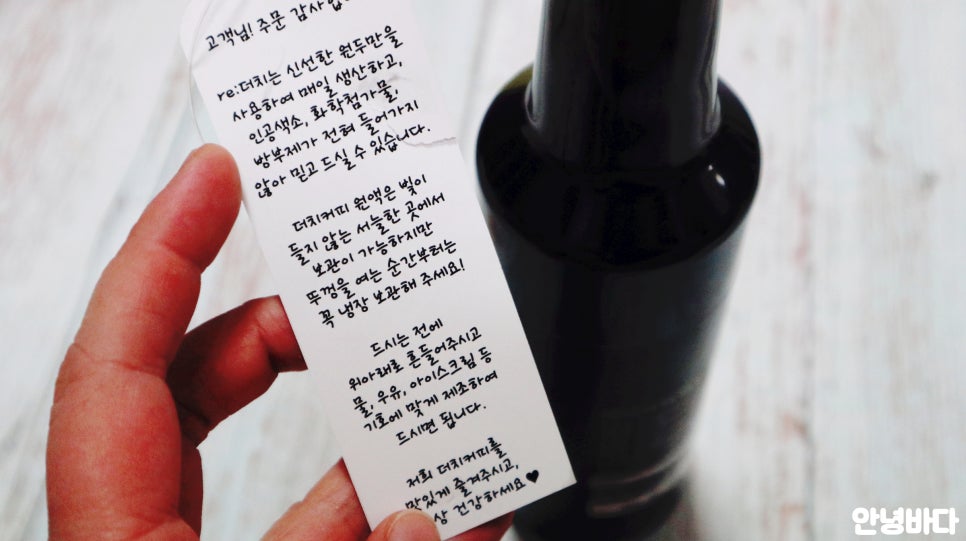 고객님! 주문 감사
re:더치는 신선한 원두만을
사용하여 매일 생산하고,
인공색소, 화학첨가물,
방부제가 전혀 들어가지
않아 믿고 드실 수 있습니다.
더치커피 원액은 빛이
들지 않는 서늘한 곳에서
보관이 가능하지만
뚜껑을 여는 순간부터는
꼭 냉장 보관해 주세요!
드시는 전에
위아래로 흔들어주시고
물, 우유, 아이스크림 등
기호에 맞게 제조하여
드시면 됩니다.
저희 더치커피를
맛있게 즐겨주시고,
상 건강하세요♥
안녕바다